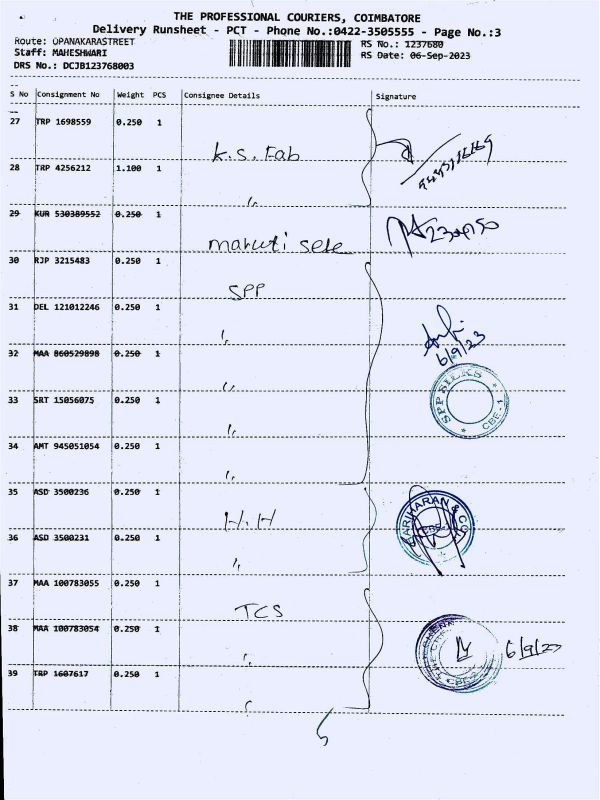 THE PROFESSIONAL COURIERS, COIMBATORE
Delivery Runsheet - PCT - Phone No.:0422-3505555 - Page No.:3
Route: OPANAKARASTREET
Staff: MAHESHWARI
DRS No.: DCJB123768003
RS No.: 1237680
RS Date: 06-Sep-2023
S No Consignment No Weight PCS Consignee Details Signature
27 TRP 1698559 0.250 1 K.S. Fab
28 TRP 4256212 1.100 1 "
29 KUR 530389552 0.250 1 maruti sele
30 RJP 3215483 0.250 1 SPP
31 DEL 121012246 0.250 1 "
6/9/23
32 MAA 860529898 0.250 1 "
SPP SILKS
CBE - 1
33 SRT 15056075 0.250 1 "
34 AMT 945051054 0.250 1 "
35 ASD 3500236 0.250 1 H.H
HARIHARAN & CO.
CBE
36 ASD 3500231 0.250 1 "
37 MAA 100783055 0.250 1 TCS
38 MAA 100783054 0.250 1 "
6/9/23
39 TRP 1607617 0.250 1 "